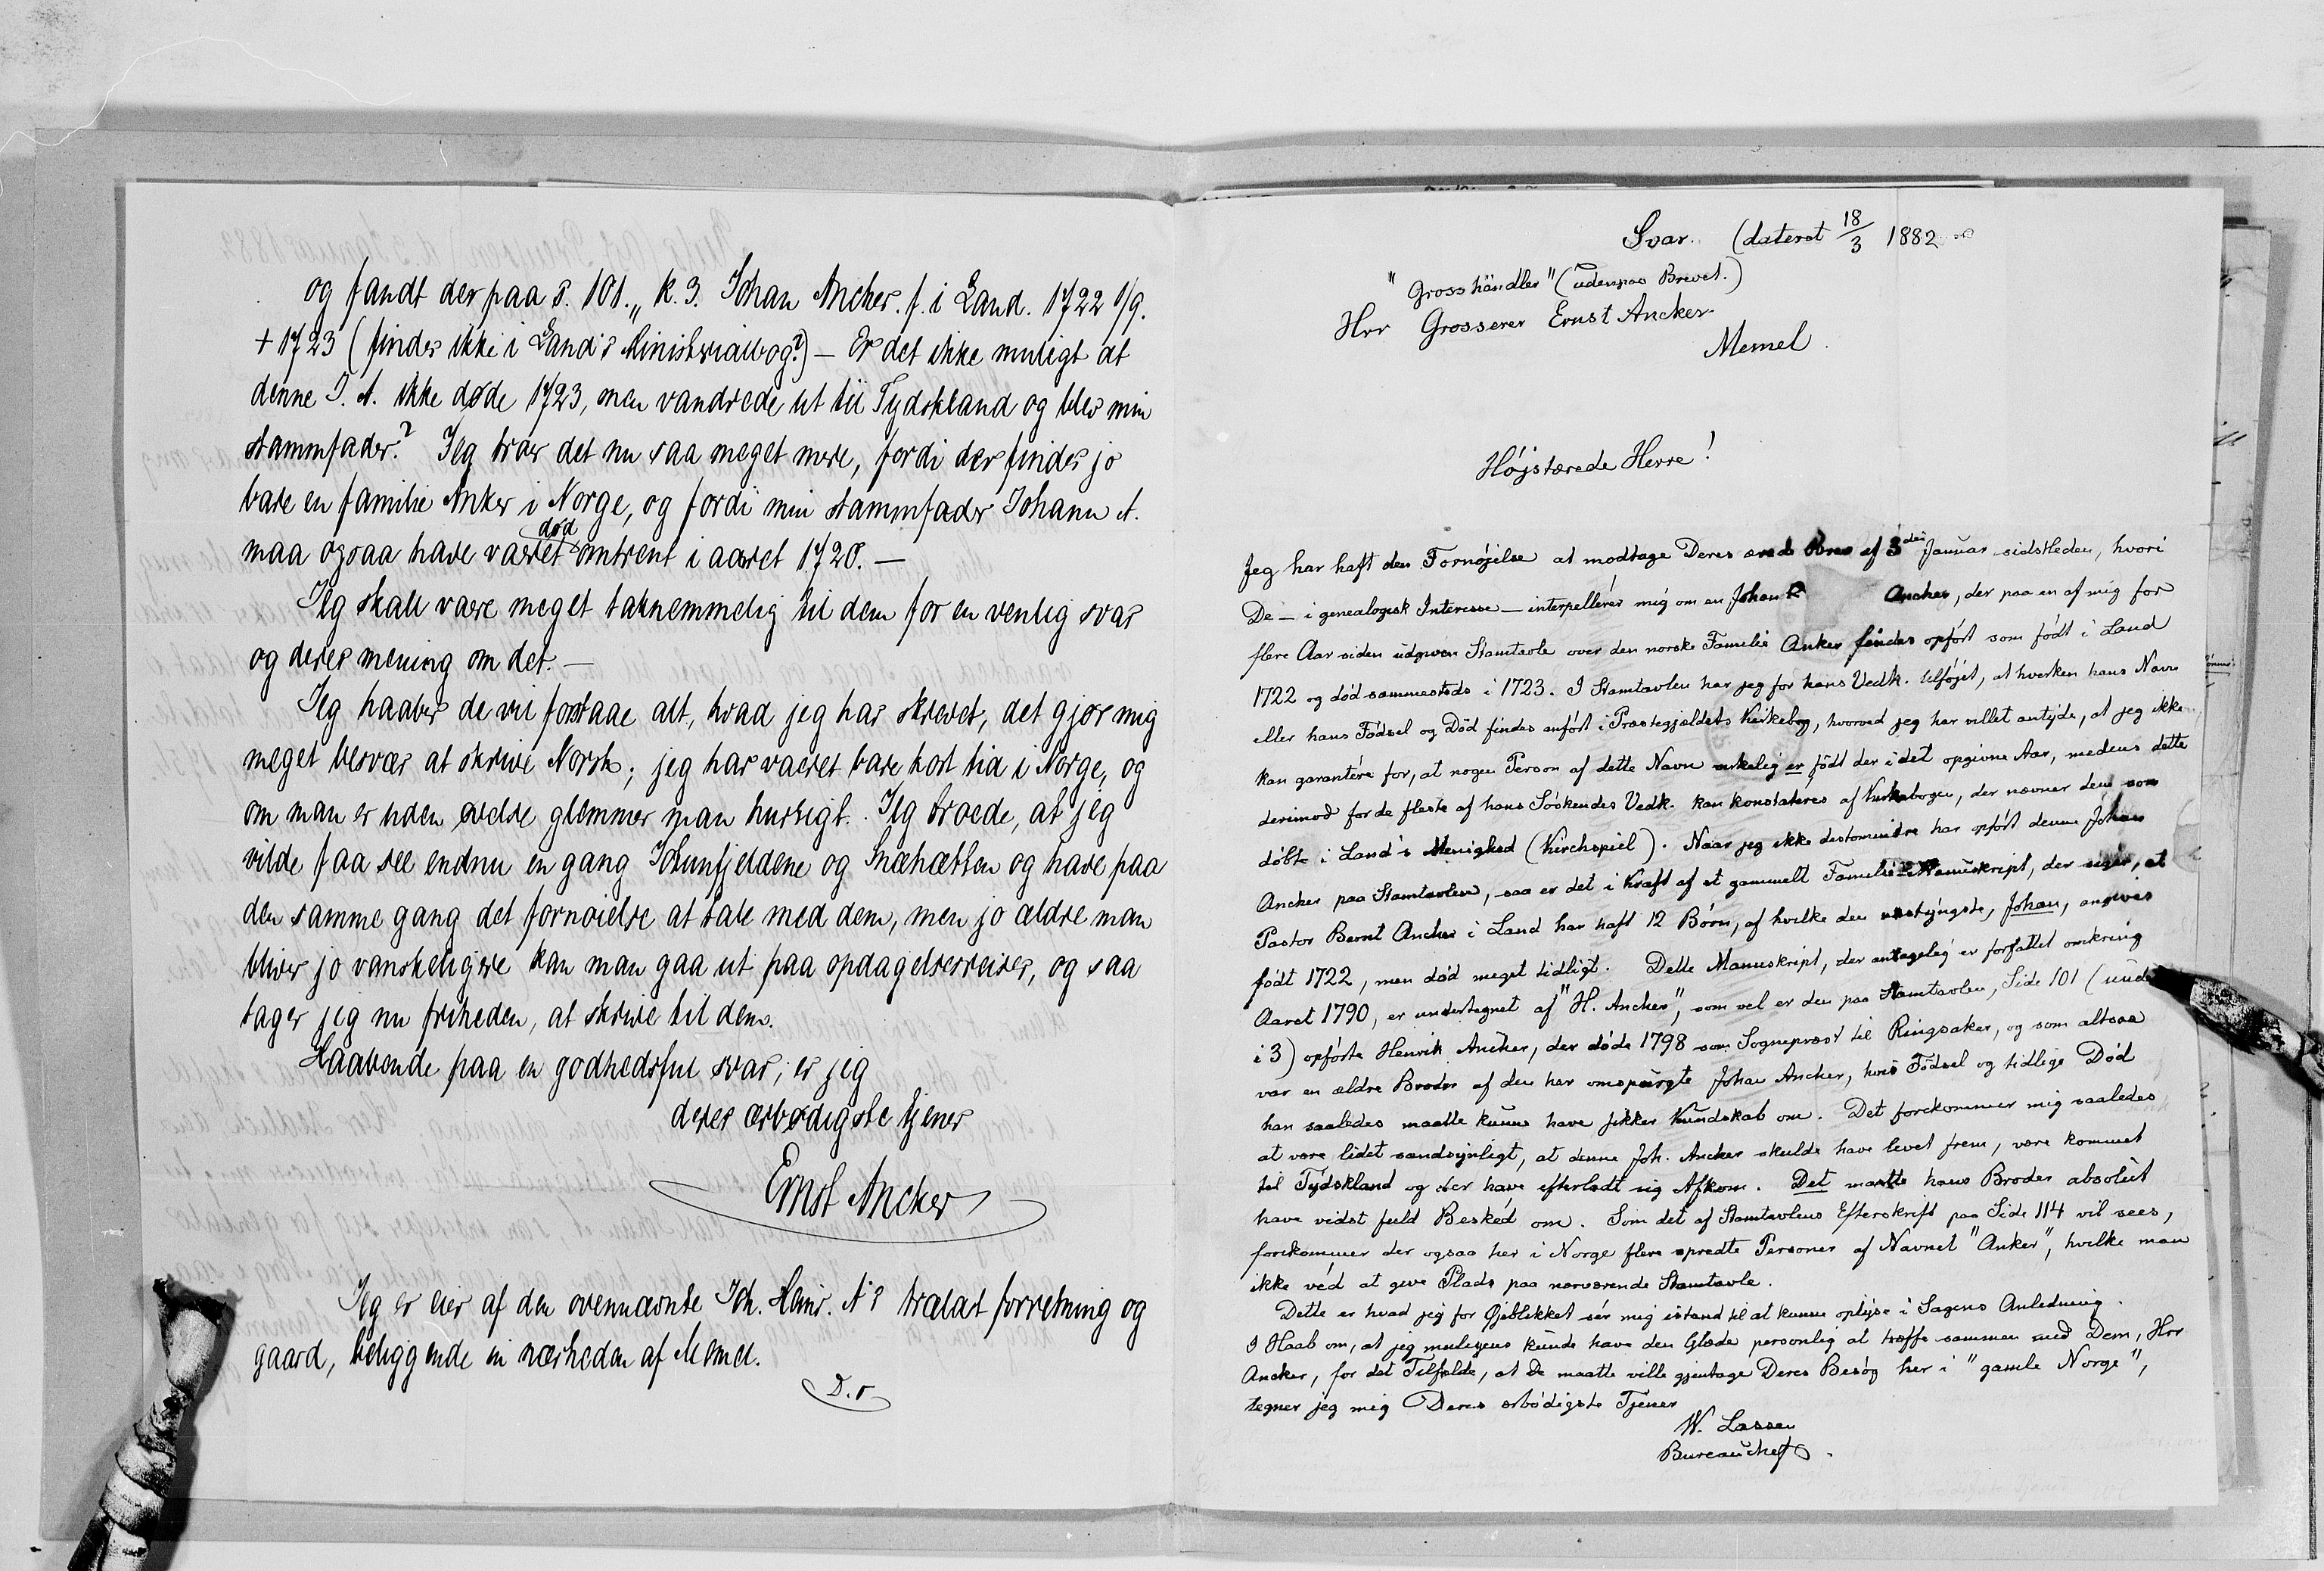 og fandt der paa s. 101. „ k. 3. Johan Ancher. f. i Land. 1722 1/9.
+ 1723 (findes ikke i Land's Ministerialbog?) — Er det ikke muligt at
denne J. A. ikke døde 1723, men vandrede ut til Tydskland og blev min
stammfader? Jeg troer det nu saa meget mere, fordi der findes jo
bare en familie Anker i Norge, og fordi min stammfader Johann A.
maa ogsaa have været død omtrent i aaret 1720. —
Jeg skall være meget taknemmelig til dem for en venlig svar
og deres mening om det. —
Jeg haaber de vil forstaae alt, hvad jeg har skrevet, det gjør mig
meget besvær at skrive Norsk; jeg har vaeret bare kort tid i Norge, og
om man er uden øvelse glemmer man hursigt. Jeg troede, at jeg
vilde faa see endnu en gang Jotunfjeldene og Snæhætten og have paa
den samme gang det fornøielse at tale med dem, men jo ældre man
bliver jo vanskeligere kan man gaa ut paa opdagelsesreiser, og saa
tager jeg nu friheden, at skrive til dem.
Haabende paa en godhedsful svar, er jeg
deres ærbødigste tjener
Ernst Ancker
Jeg er eier af den ovennævnte Joh. Heinr. A's trælast forretning og
gaard, beliggende in nærheden af Memel.
D. s
Svar. (dateret 18/3 1882
"Grosshändler" (udenpaa Brevet.)
Hrr Grosserer Ernst Ancker
Memel.
Højstærede Herre!
Jeg har haft den Fornøjelse at modtage Deres ærede Brev af 3den Januar sidstleden, hvori
De — i genealogisk Interesse — interpellérer mig om en Johan Ancher, der paa en af mig for
flere Aar siden udgiven Stamtavle over den norske Familie Anker findes opført som født i Land
1722 og død sammesteds i 1723. I Stamtavlen har jeg for hans Vedk. tilføjet, at hverken hans Navn
eller hans Fødsel og Død findes anført i Præstegjældets Kirkebog, hvorved jeg har villet antyde, at jeg ikke
kan garantére for, at nogen Person af dette Navn virkelig er født der i det opgivne Aar, medens dette
derimod for de fleste af hans Søskendes Vedk. kan konstateres af Kirkebogen, der nævner dem som
døbte i Land's Menighed (Kirchspiel). Naar jeg ikke destomindre har opført denne Johan
Ancher paa Stamtavlen, saa er det i Kraft af et gammelt Familie-Manuskript, der siger, at
Pastor Bernt Ancher i Land har haft 12 Børn, af hvilke den næstyngste, Johan, angives
født 1722, men død meget tidligt. Dette Manuskript, der antagelig er forfattet omkring
Aaret 1790, er undertegnet af "H. Ancher", som vel er den paa Stamtavlen, Side 101 (under
i 3) opførte Henrik Ancher, der døde 1798 som Sognepræst til Ringsaker, og som altsaa
var en ældre Broder af den her omspurgte Johan Ancher, hvis Fødsel og tidlige Død
han saaledes maatte kunne have sikker Kundskab om. Det forekommer mig saaledes
at være lidet sandsynligt, at denne Joh. Ancher skulde have levet frem, være kommet
til Tydskland og der have efterladt sig Afkom. Det maatte hans Broder absolut
have vidst fuld Besked om. Som det af Stamtavlens Efterskrift paa Side 114 vil sees,
forekommer der ogsaa her i Norge flere spredte Personer af Navnet "Anker", hvilke man
ikke véd at give Plads paa nærværende Stamtavle.
Dette er hvad jeg for Øjeblikket sér mig istand til at kunne oplyse i Sagens Anledning.
I Haab om, at jeg muligens kunde have den Glæde personlig at træffe sammen med Dem, Hrr
Ancker, for det Tilfælde, at De maatte ville gjentage Deres Besøg her i "gamle Norge",
tegner jeg mig Deres ærbødigste Tjener
W. Lassen
Bureauchef.